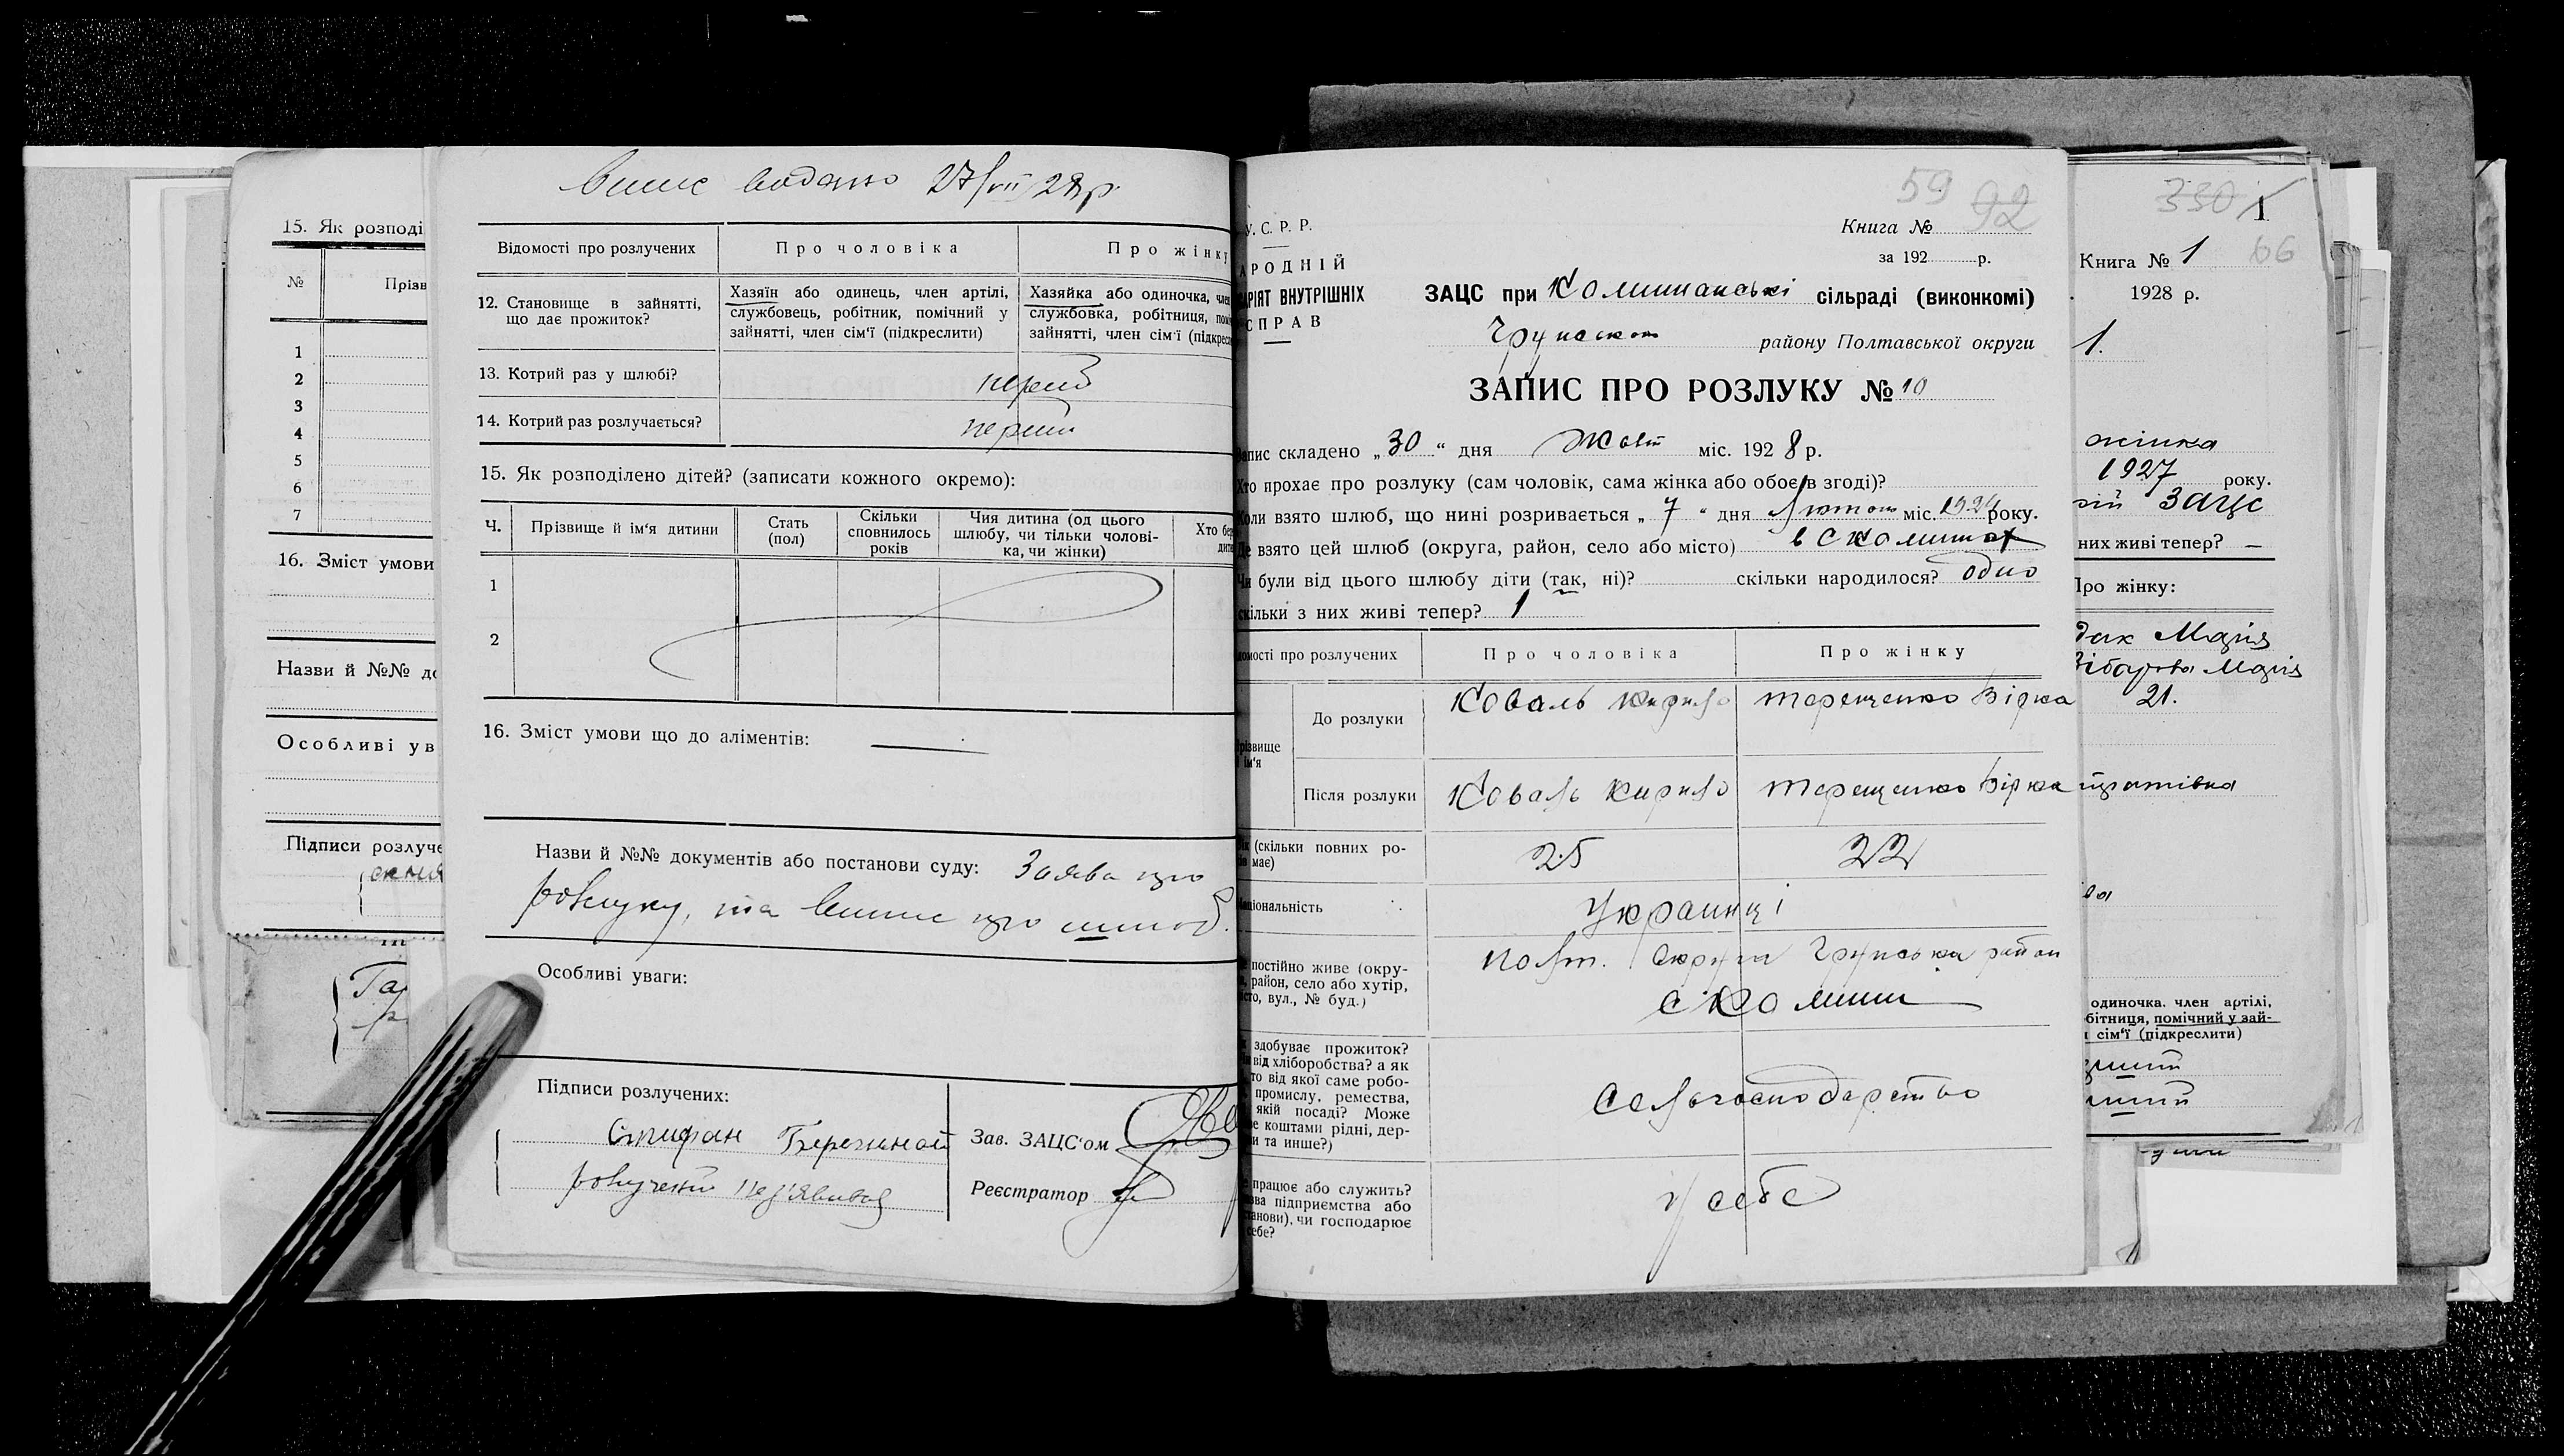 15. Як розподі
№
Прізв
1
2
3
4
5
6
7
16. Зміст умови
Назви й №№ до
Особливі ув
Підписи розлуче
Випис видано 27/VII 28р.
Відомості про розлучених
Про чоловіка
Про жінку
12. Становище в зайнятті, що дає прожиток?
Хазяїн або одинець, член артілі,
службовець, робітник, помічний у
зайнятті, член сім'ї (підкреслити)
Хазяйка або одиночка, член
службовка, робітниця, помі
зайнятті, член сім'ї (підкресл
13. Котрий раз у шлюбі?
перший
14. Котрий раз розлучається?
перший
15. Як розподілено дітей? (записати кожного окремо):
Ч.
Прізвище й ім'я дитини
Стать (пол)
Скільки сповнилось років
Чия дитина (од цього
шлюбу, чи тільки чолові-
ка, чи жінки)
Хто бер
дити
1
2
16. Зміст умови що до аліментів: —
Назви й №№ документів або постанови суду: Заява про
розлуку, та випис про шлюб.
Особливі уваги:
Підписи розлучених:
Зав. ЗАЦС'ом
Реєстратор
59 92
У.С.Р.Р.
Книга №
АРОДНІЙ
за 192 р.
АРІЯТ ВНУТРІШНІХ
СПРАВ
ЗАЦС при Комишанські сільраді (виконкомі)
Грунском району Полтавської округи
ЗАПИС ПРО РОЗЛУКУ № 10
Запис складено „30" дня Жовт міс. 1928 р.
Хто прохає про розлуку (сам чоловік, сама жінка або обоє в згоді)?
Коли взято шлюб, що нині розривається „7" дня Лютого міс. 1924 року.
Де взято цей шлюб (округа, район, село або місто) в с Комишах
Чи були від цього шлюбу діти (так, ні)? скільки народилося? одно
скільки з них живі тепер? 1
домості про розлучених
Про чоловіка
Про жінку
різвище
ім'я
До розлуки
Коваль Кирило
Терещенко Вірка
Після розлуки
Коваль Кирило
Терещенко Вірка
ік (скільки повних ро-
ів має)
25
22
аціональність
Українці
е постійно живе (окру-
, район, село або хутір,
істо, вул., № буд.)
Полт. Округи Грунська район
с Комиши
здобуває прожиток?
и від хліборобства? а як
то від якої саме робо-
промислу, ремества,
якій посаді? Може
е коштами рідні, дер-
и та инше?)
Сельгосподарство
е працює або служить?
зва підприємства або
танови), чи господарює
себе?
у себе
330 1
Книга № 1 66
1928 р.
1.
жінка
1927 року.
ЗАЦС
них живі тепер? —
Про жінку:
дак Марія
Марія
21.
одиночка. член артілі,
бітниця, помічний у зай-
сім'ї (підкреслити)